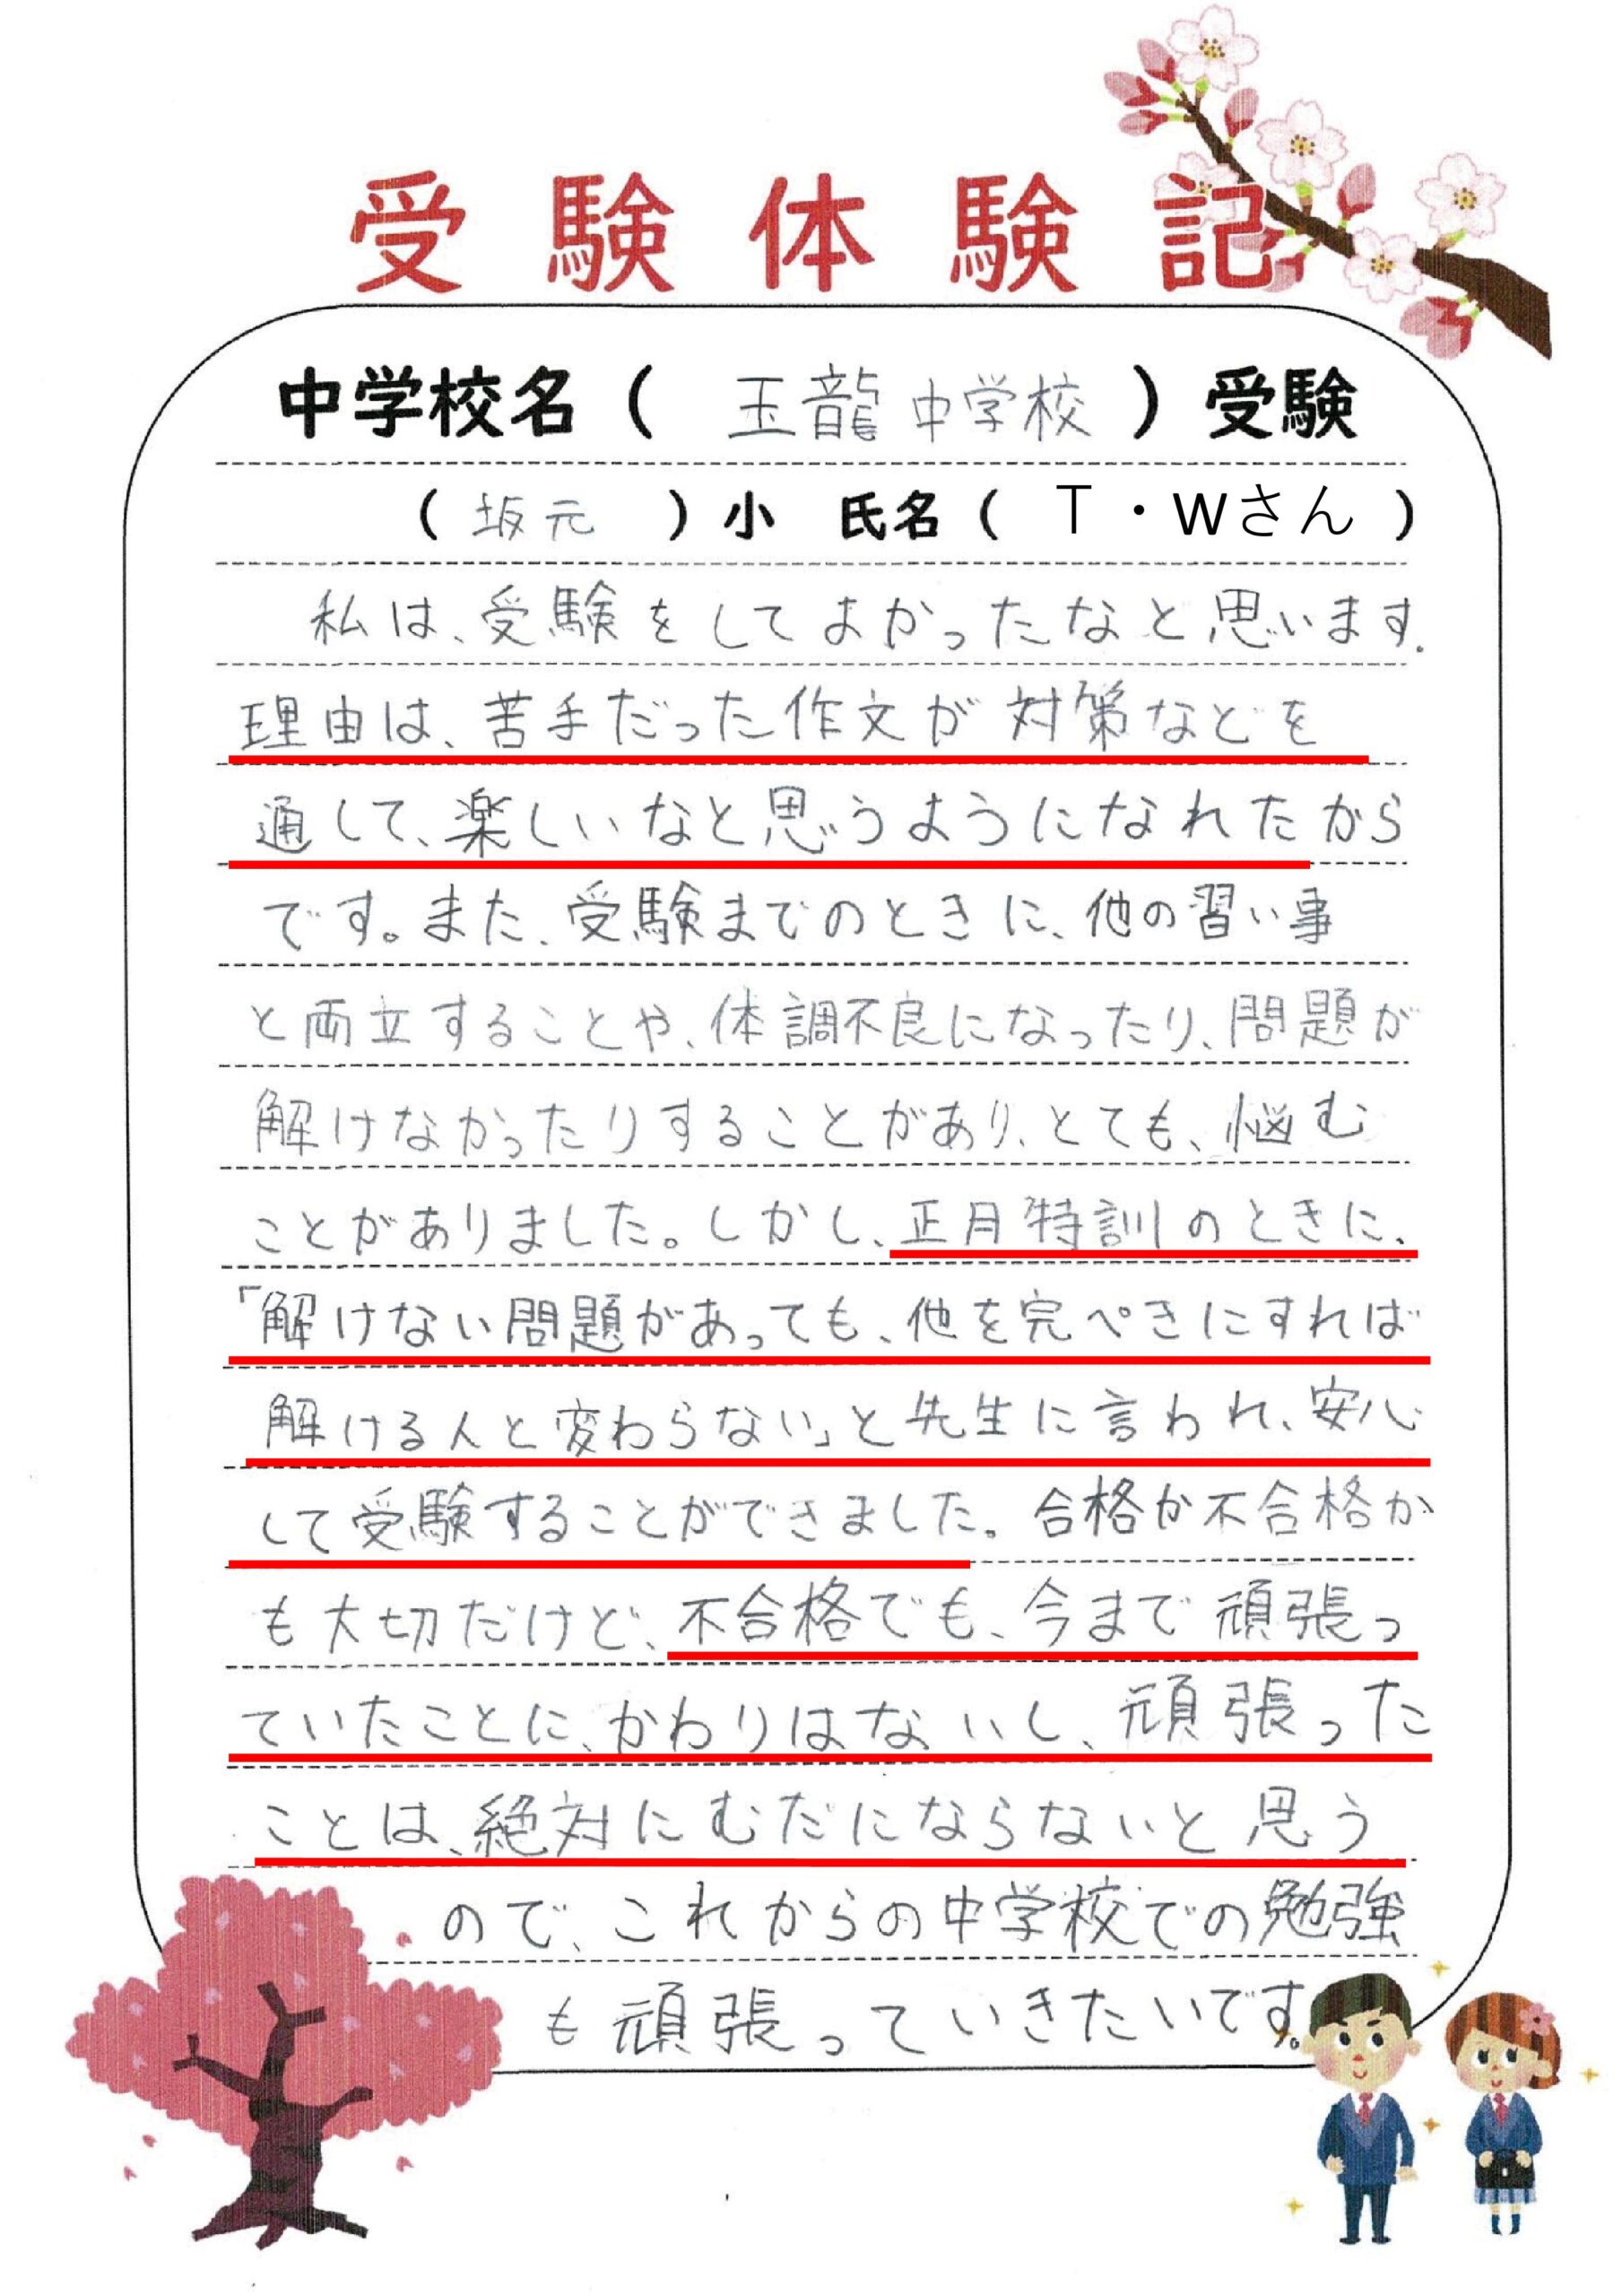 受験体験記
中学校名（ 玉龍中学校 ）受験
（ 坂元 ）小 氏名（ T・Wさん ）
私は、受験をしてよかったなと思います。
理由は、苦手だった作文が対策などを
通して、楽しいなと思うようになれたから
です。また、受験までのときに、他の習い事
と両立することや、体調不良になったり、問題が
解けなかったりすることがあり、とても、悩む
ことがありました。しかし、正月特訓のときに、
「解けない問題があっても、他を完ぺきにすれば
解ける人と変わらない」と先生に言われ、安心
して受験することができました。合格か不合格か
も大切だけど、不合格でも、今まで頑張っ
ていたことに、かわりはないし、頑張った
ことは、絶対にむだにならないと思う
ので、これからの中学校での勉強
も頑張っていきたいです。